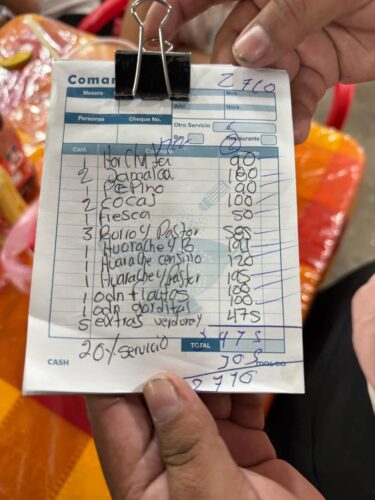 Coman
2710
Mesero
Mes
Año
Hora
Personas
Cheque No.
Otro Servicio
Bar
Restaurante
Cant.
1 Horchata 90
2 Jamaica 180
1 Pepino 90
2 COCAS 100
1 Fresca 50
3 Burro y Pastor 585
1 Huarache y B
1 Huarache sencillo 120
1 Huarache y Pastor 195
1 odn tlautos 100
1 odn gorditas 100
5 extras verduray 475
20% servicio
TOTAL
CASH
2710